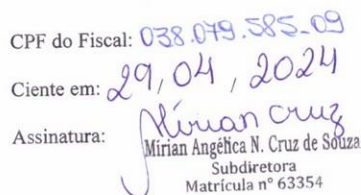 CPF do Fiscal: 038.079.585-09
Ciente em: 29, 04, 2024
Assinatura: Mírian Cruz
Mírian Angélica N. Cruz de Souza
Subdiretora
Matrícula nº 63354